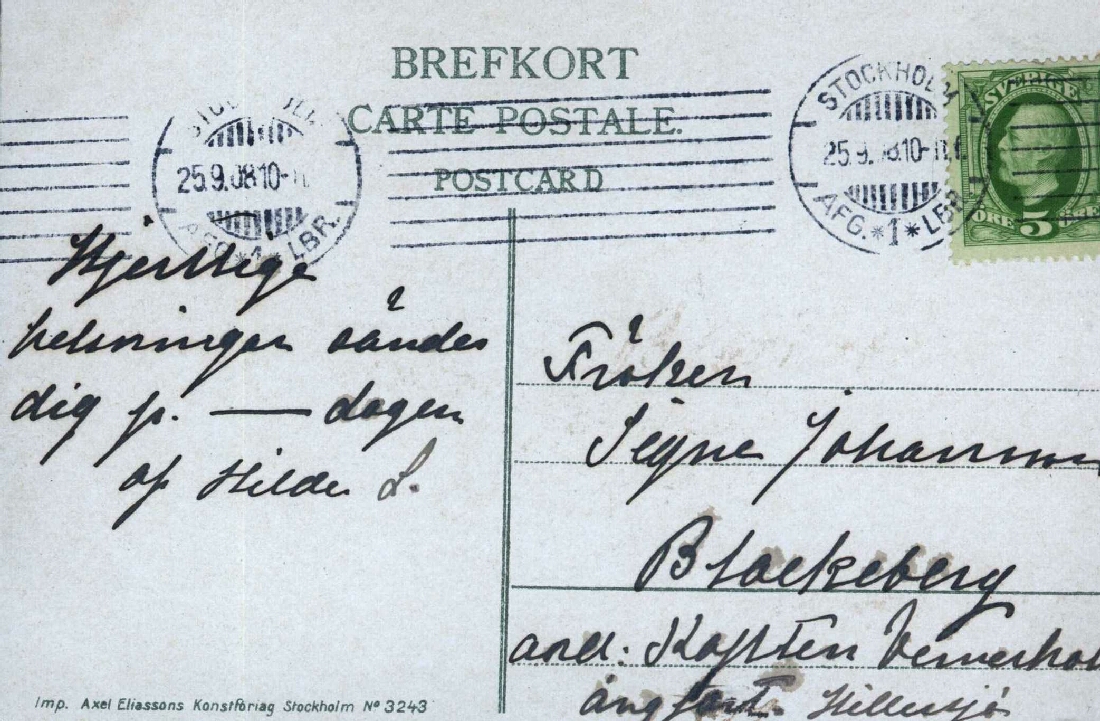 BREFKORT
CARTE POSTALE.
POSTCARD
25.9.08 10-11
AFG. *1* LBR.
STOCKHOLM
25.9. 10-11
AFG. *1* LBR
SVERIGE
ÖRE 5
Hjertliga
helsningar sändes
dig p. — dagen
af Hilda L.
Fröken
Signe
Blackeberg
and: Kapten
ångfart. Hillersjö
Imp. Axel Eliassons Konstförlag Stockholm No 3243